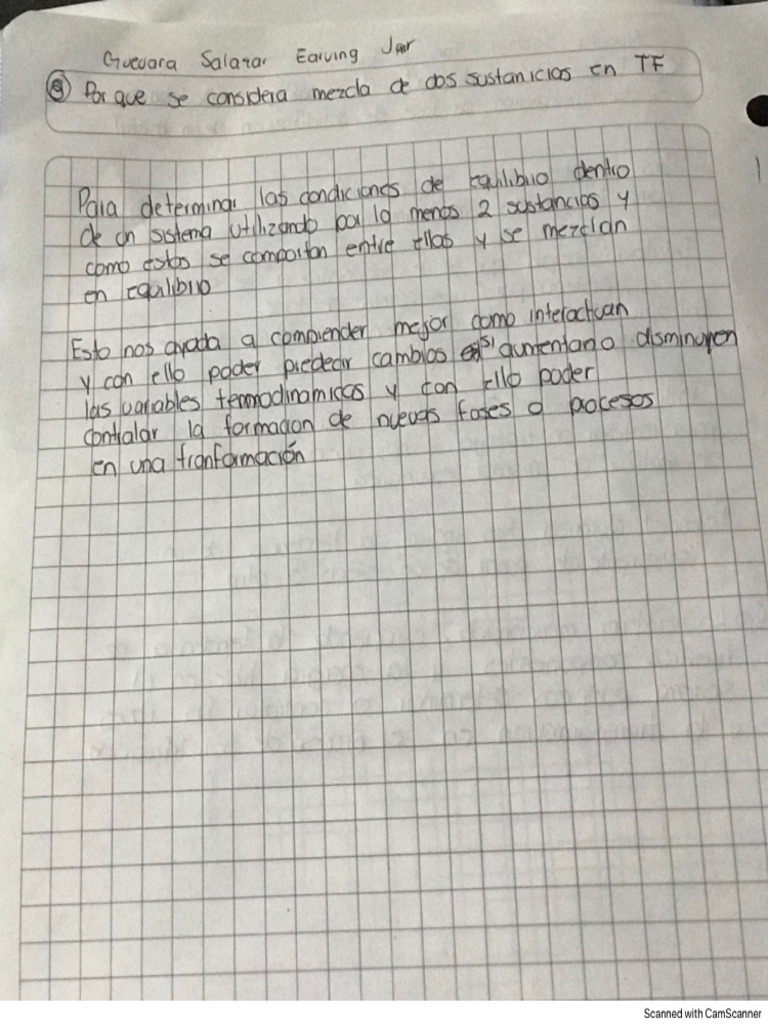 Guevara Salazar Earving Jair
③ Por que se considera mezcla de dos sustanicias en TF
Para determinar las condiciones de equilibrio dentro
de un sistema utilizando por lo menos 2 sustancias y
como estas se comportan entre ellas y se mezclan
en equilibrio
Esto nos ayuda a comprender mejor como interactuan
y con ello poder predecir cambios si aumentan o disminuyen
las variables termodinamicas y con ello poder
controlar la formacion de nuevas fases o procesos
en una tranformación
Scanned with CamScanner